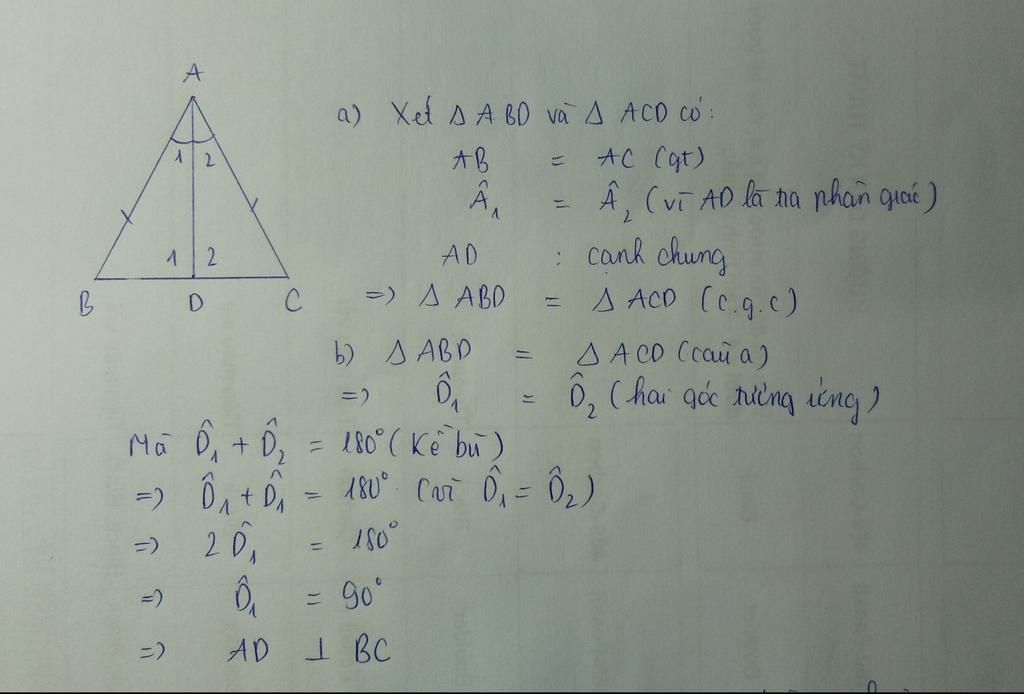 A
1 2
1 2
B D C
a) Xét Δ ABD và Δ ACD có:
AB = AC (gt)
Â₁ = Â₂ (vì AD là tia phân giác)
AD : cạnh chung
=> Δ ABD = Δ ACD (c.g.c)
b) Δ ABD = Δ ACD (câu a)
=> D̂₁ = D̂₂ (hai góc tương ứng)
Mà D̂₁ + D̂₂ = 180° (Kề bù)
=> D̂₁ + D̂₁ = 180° (vì D̂₁ = D̂₂)
=> 2 D̂₁ = 180°
=> D̂₁ = 90°
=> AD ⊥ BC